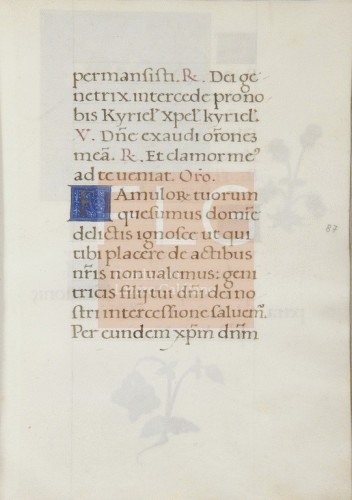 permansisti. R. Dei ge
netrix intercede prono
bis Kyriel̃ Xpel̃ kyriel̃.
V. Dñe exaudi orõnem
meã. R. Et clamor me⁹
ad te veniat. Orõ.
FAmuloꝝ tuorum
quesumus domiẽ
delictis ignosce ut qui
tibi placere de actibus
nr̃is non valemus: geni
tricis filij tui dñi dei no
stri intercessione saluem̃.
Per eundem xp̃m dnm̃
87